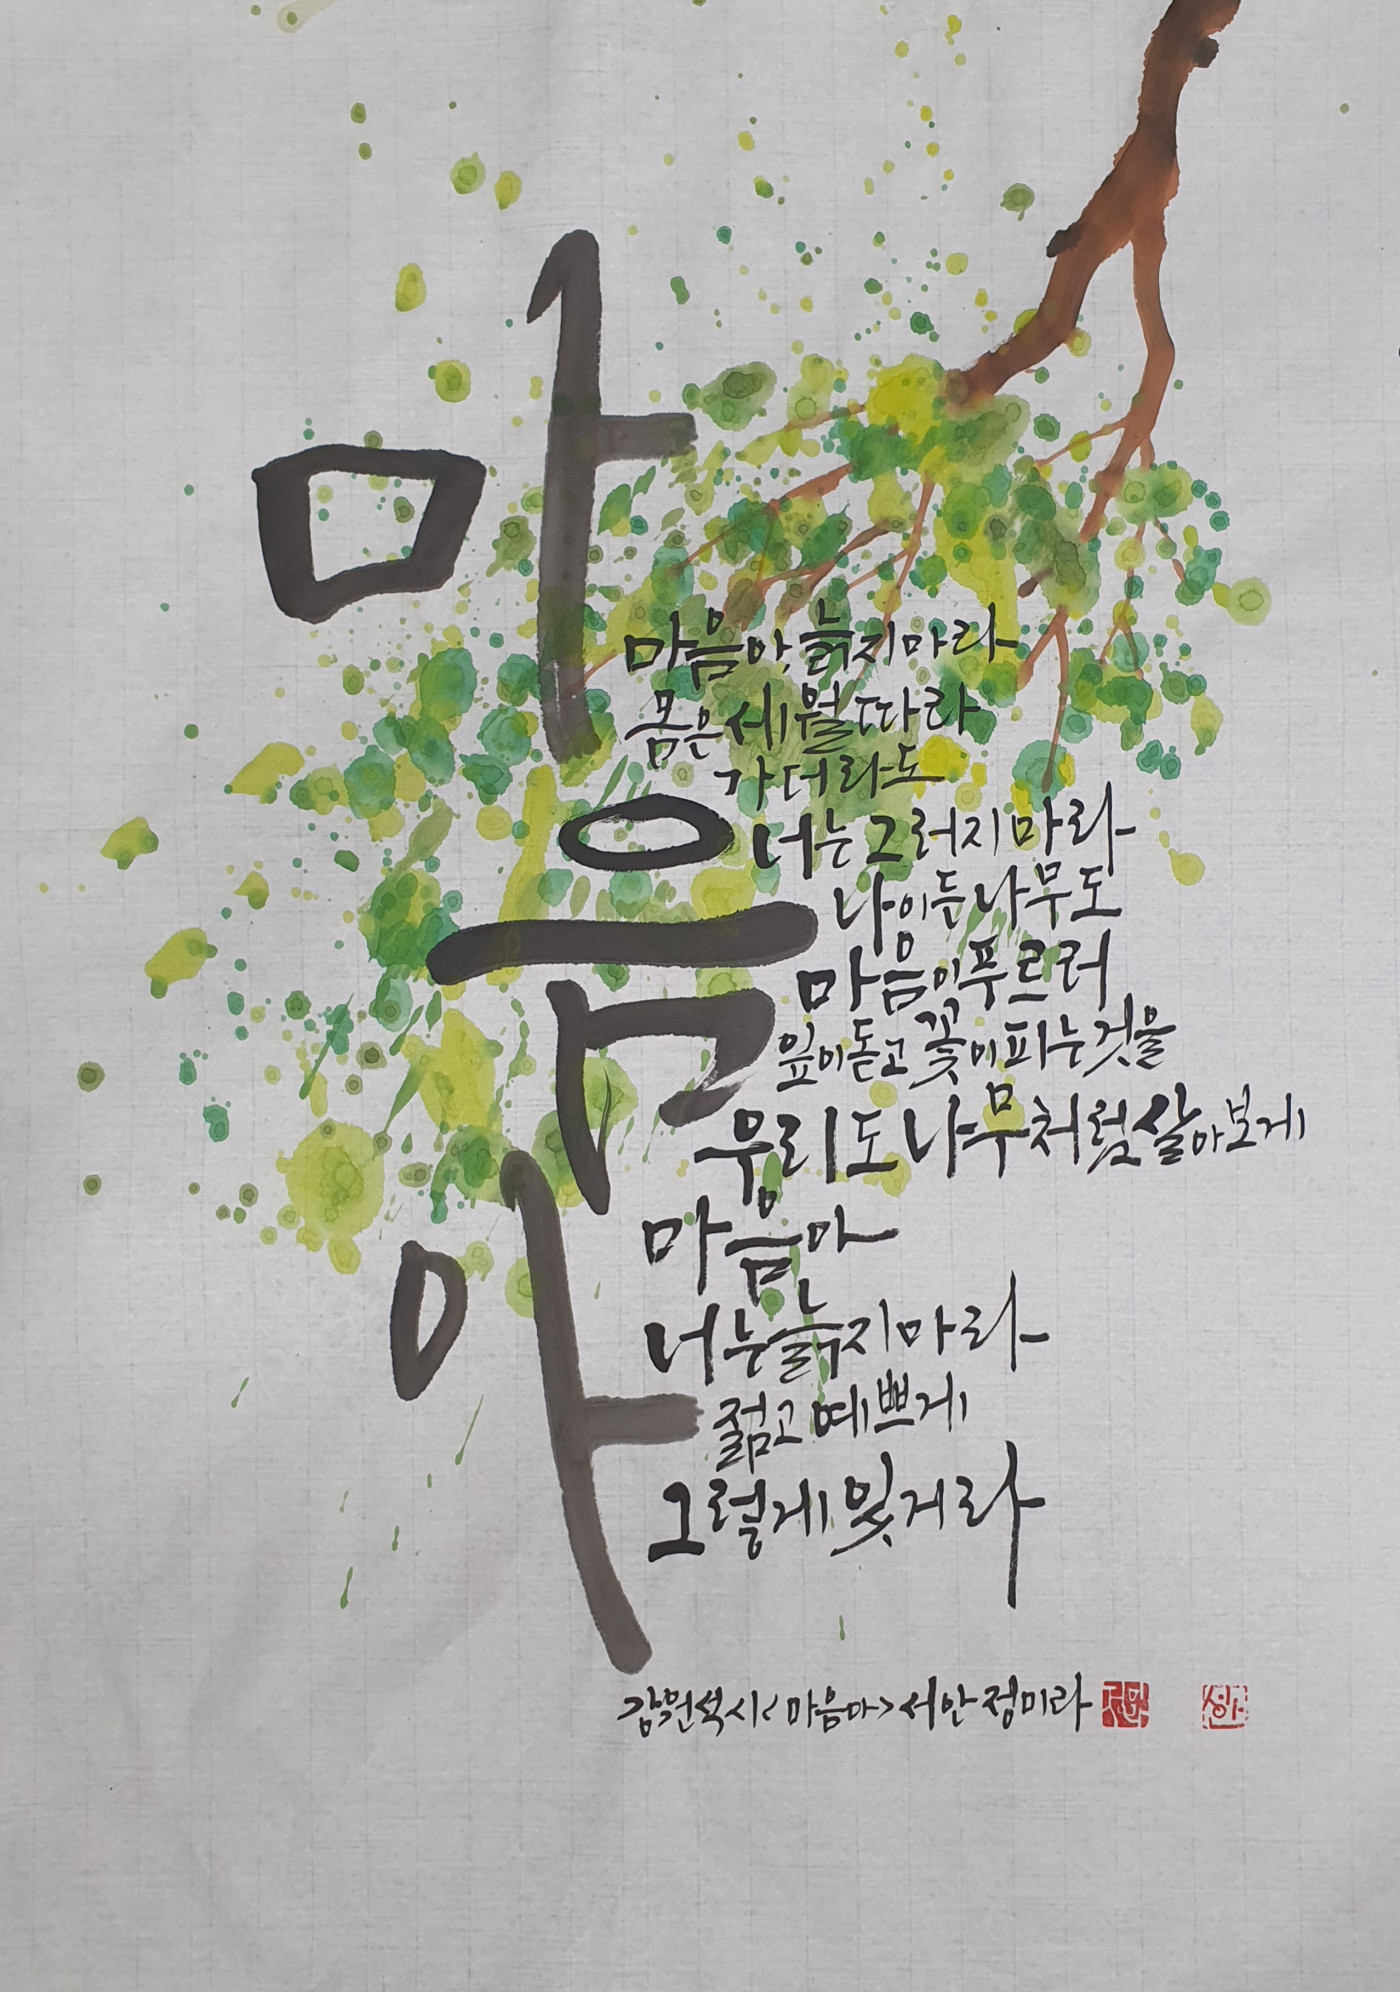 마음아
마음아, 늙지마라
몸은 세월따라
가더라도
너는 그러지마라
나이든 나무도
마음이 푸르러
잎이 돋고 꽃이 피는 것을
우리도 나무처럼 살아보게
마음아
너는 늙지마라
젊고 예쁘게
그렇게 있게라
강원석 시 <마음아> 서안 정미라
서안